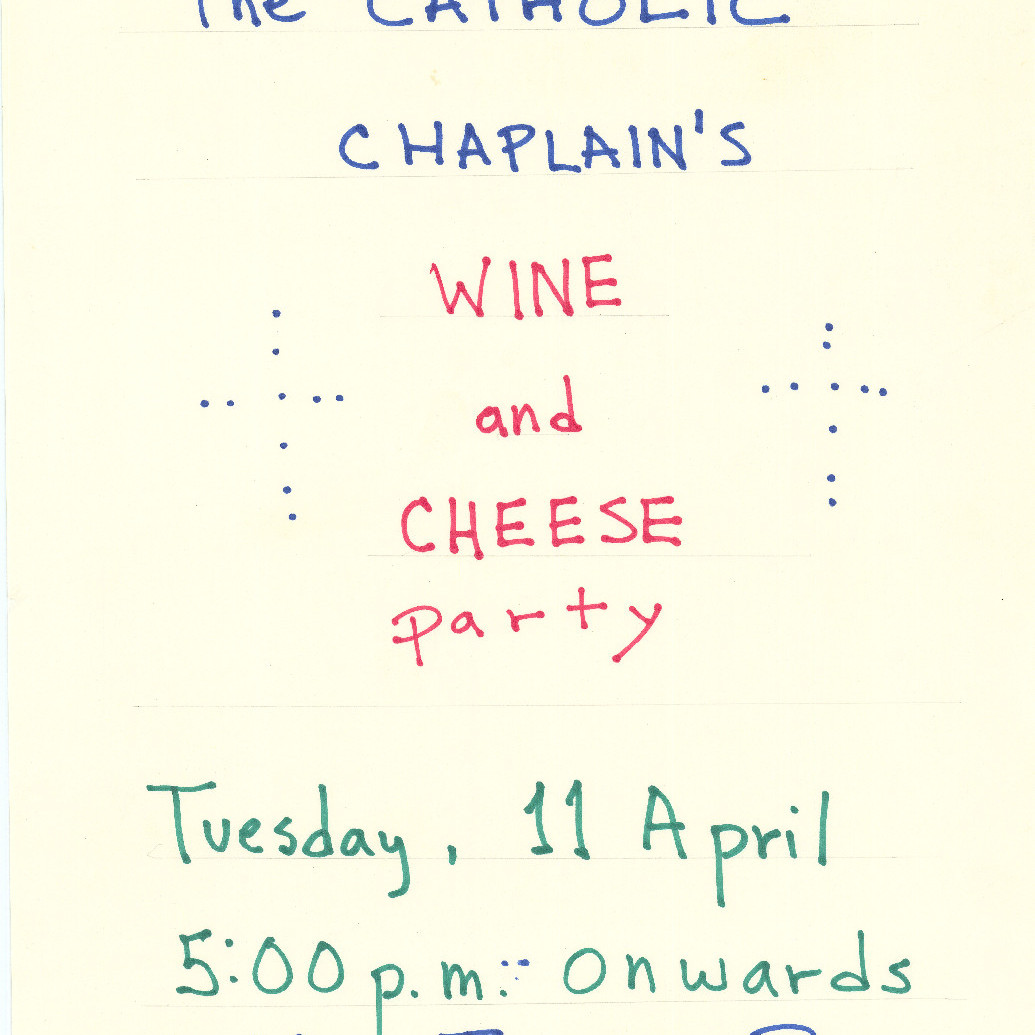 The CATHOLIC
CHAPLAIN'S
WINE
and
CHEESE
party
Tuesday, 11 April
5:00 p.m. onwards